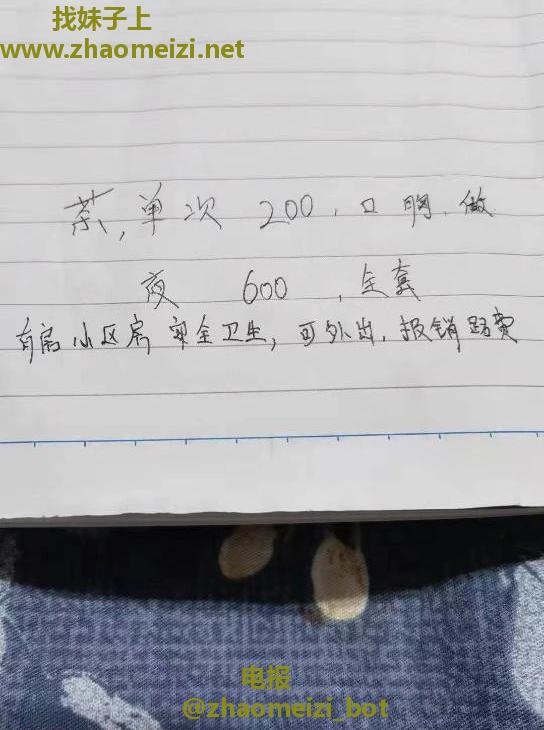 找妹子上
www.zhaomeizi.net
茶,单次 200,口 胸,做
夜 600,全套
有房 小区房 安全卫生,可外出,报销路费
电报
@zhaomeizi_bot